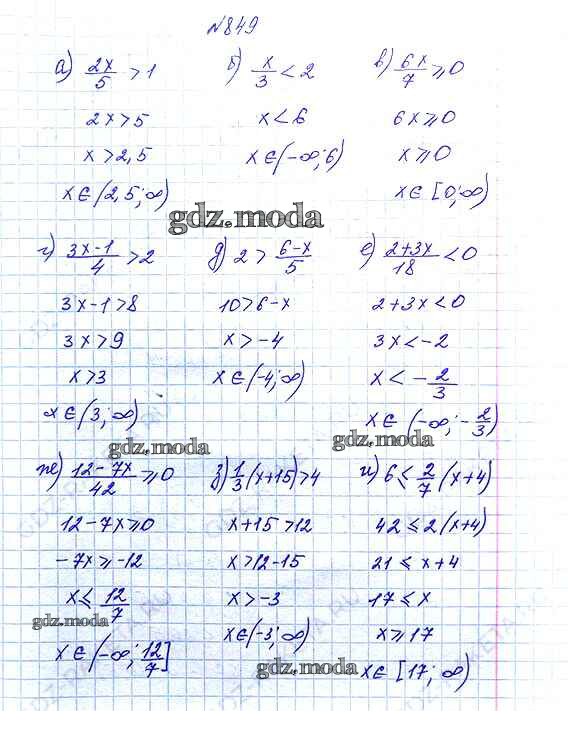 №849
а) 2x/5 > 1
2x > 5
x > 2,5
x ∈ (2,5; ∞)
б) x/3 < 2
x < 6
x ∈ (-∞; 6)
в) 6x/7 ⩾ 0
6x ⩾ 0
x ⩾ 0
x ∈ [0; ∞)
gdz.moda
г) 3x-1/4 > 2
3x-1 > 8
3x > 9
x > 3
x ∈ (3; ∞)
д) 2 > 6-x/5
10 > 6-x
x > -4
x ∈ (-4; ∞)
е) 2+3x/18 < 0
2+3x < 0
3x < -2
x < -2/3
x ∈ (-∞; -2/3)
gdz.moda
gdz.moda
ж) 12-7x/42 ⩾ 0
12-7x ⩾ 0
-7x ⩾ -12
x ⩽ 12/7
gdz.moda
x ∈ (-∞; 12/7]
з) 1/3 (x+15) > 4
x+15 > 12
x > 12-15
x > -3
x ∈ (-3; ∞)
gdz.moda
и) 6 ⩽ 2/7 (x+4)
42 ⩽ 2(x+4)
21 ⩽ x+4
17 ⩽ x
x ⩾ 17
x ∈ [17; ∞)